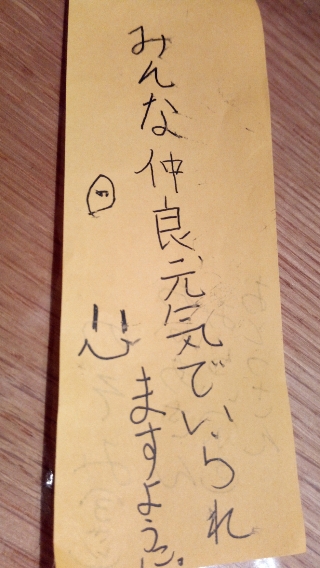 みんな仲良く元気でいられ
ますように